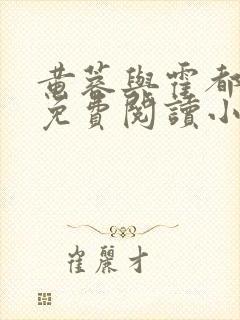 黄蓉與霍都
免費閱讀小
崔麗才